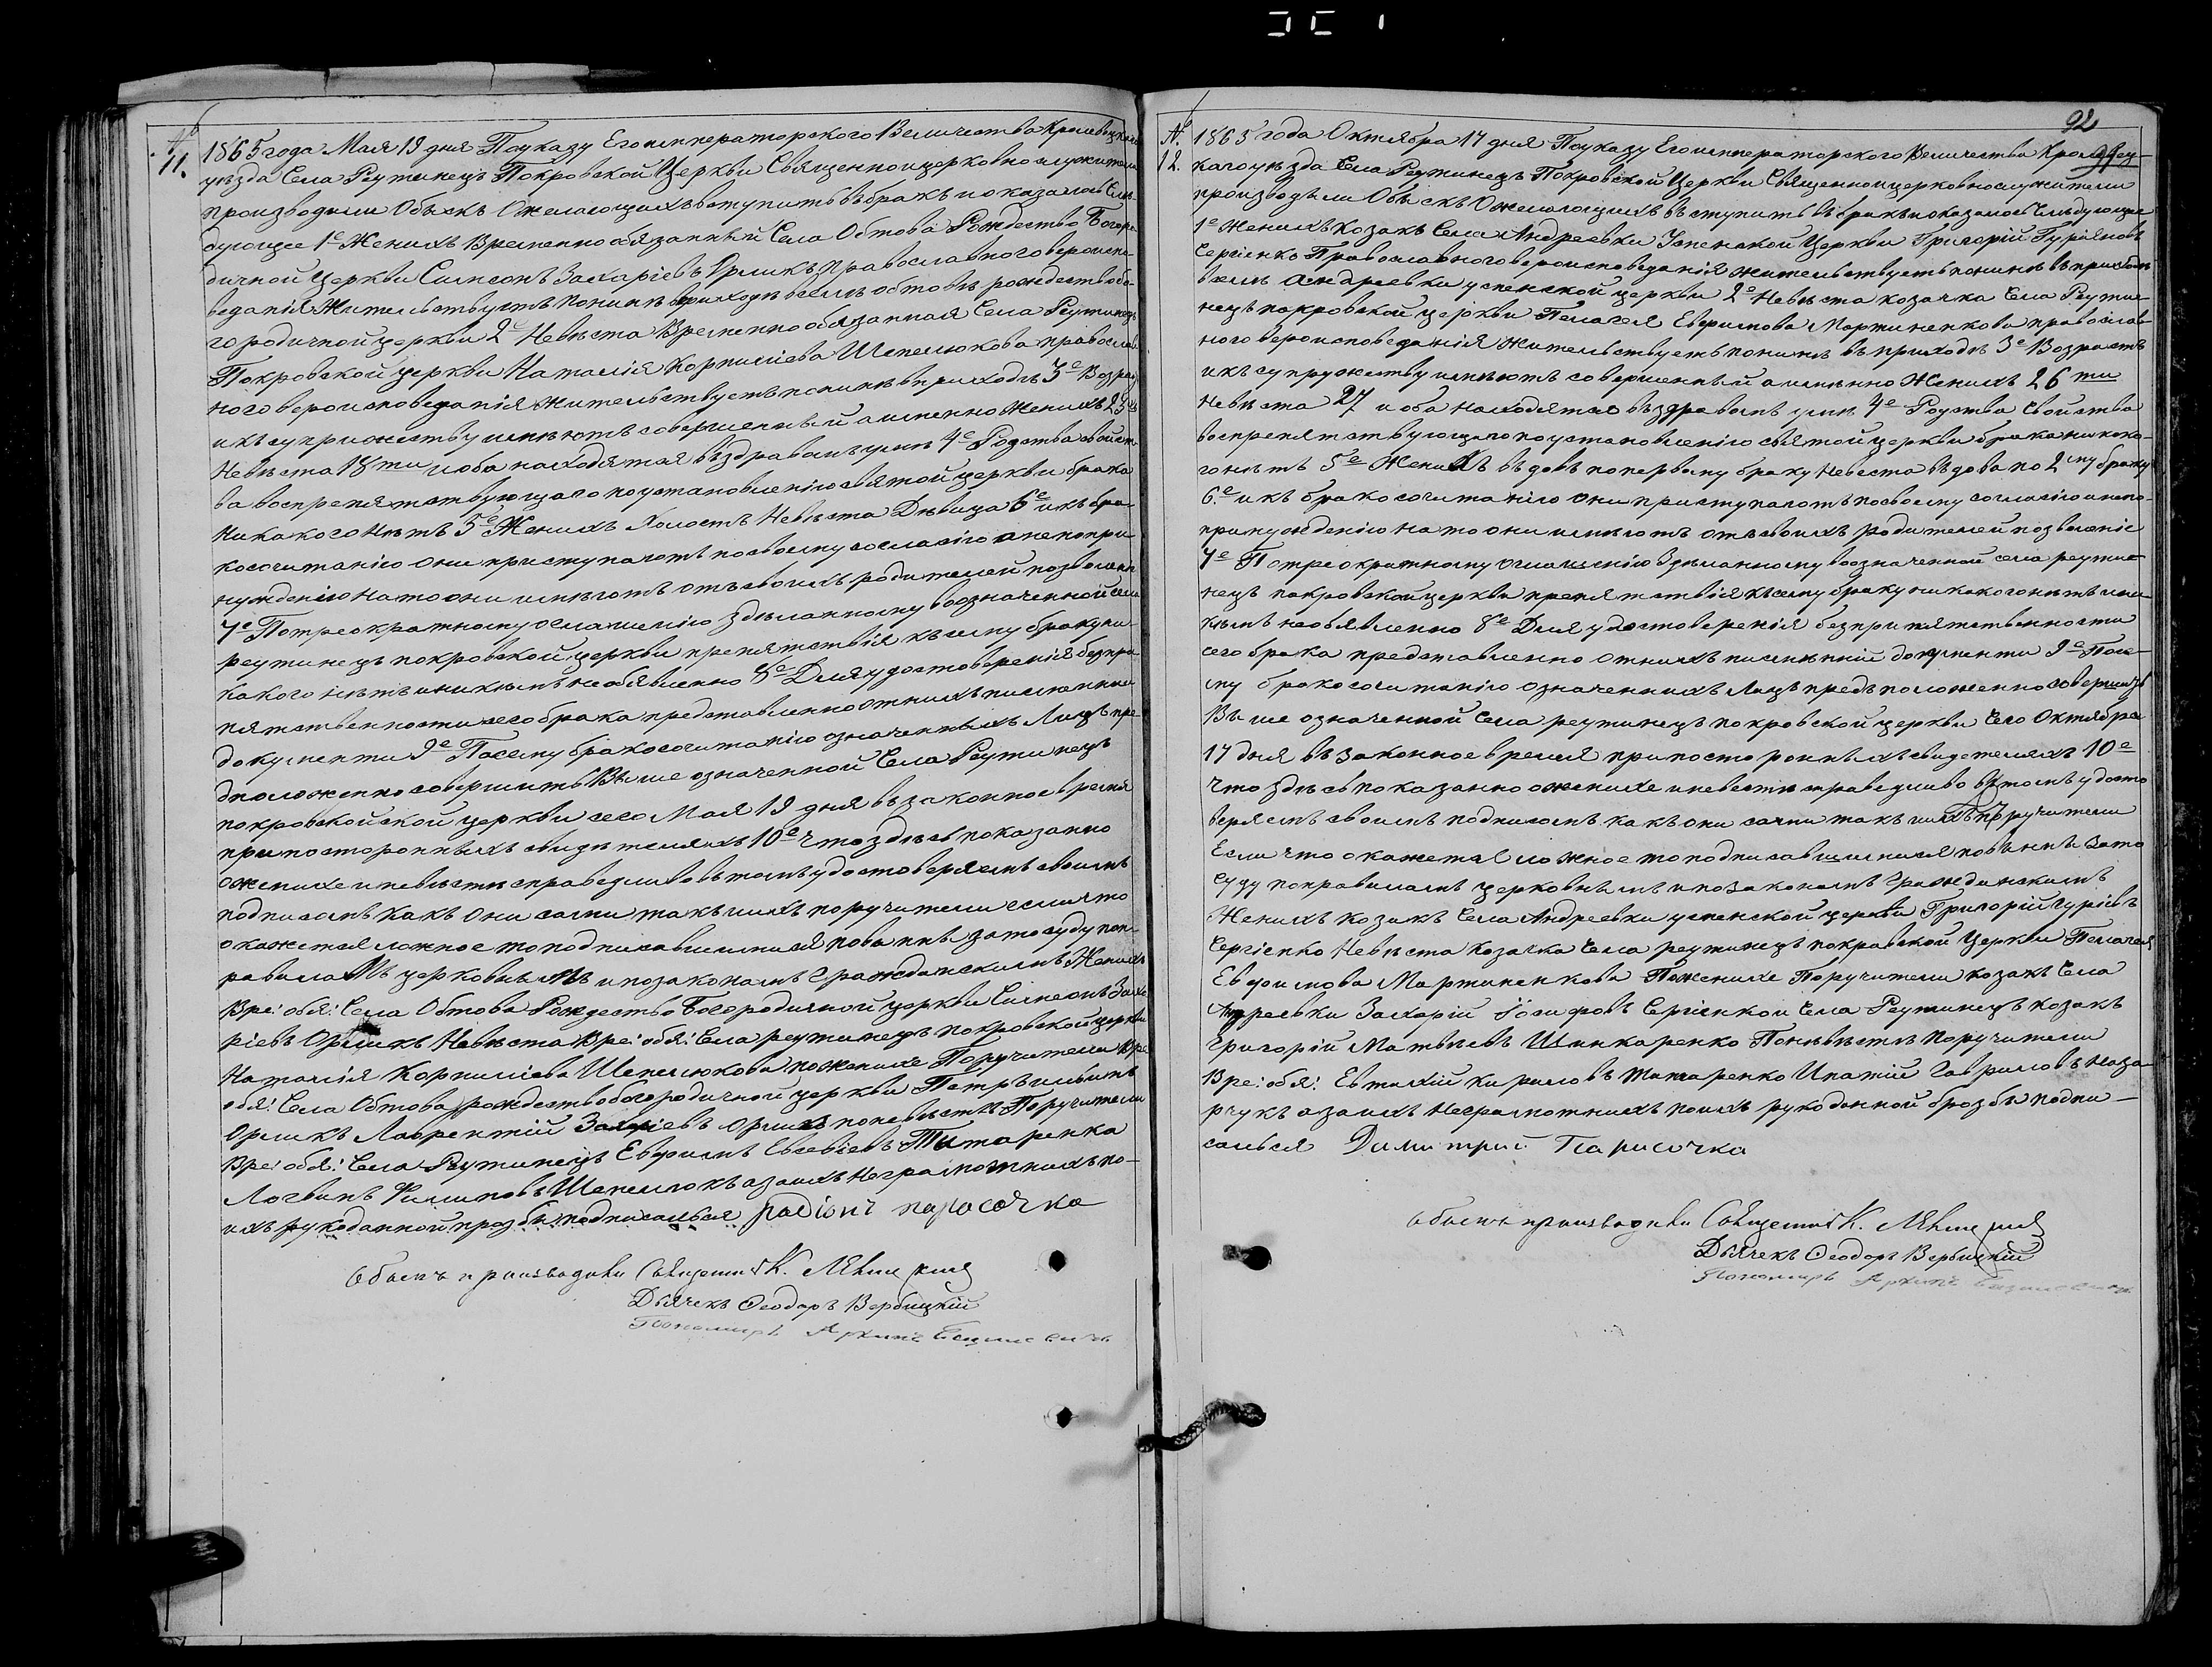 № 11.
1865 года Мая 19 дня По указу Его императорского Величества Кролевецкаго
уезда Села Реутинецъ Покровской Церкви Священно и церковно служители
производили Обыскъ О желающихъ вступить въ бракъ и оказалось Слѣ-
дующее 1е Женихъ Временно обязанный Села Обтова Рождество Богоро
дичной Церкви Симеонъ Захаріевъ Орликъ Православного вероиспо
веданія Жительствуетъ понинѣ вприходѣ всемъ обтовѣ рождествобо
городичной церкви 2е Невѣста Временно обязанная Села Реутинецъ
Покровской церкви Наталія Корниліева Шепелюкова православ
ного вероисповеданія жительствуетъ понинѣ вприходѣ 3е Возрас
ихъ супружеству имѣютъ совершенный а именно Женихъ 23
Невѣста 18ти и оба находятся въ здравомъ умѣ 4е Родства свойст
ва воспрепятствующаго по установленію святой церкви брака
никакого нѣтъ 5е Женихъ Холостъ Невѣста Дѣвица 6е ихъ бра
косочитанію они приступаютъ по своему согласію а не попри
нужденію на то они имѣютъ отъ своихъ родителей позволені
7е По треократному оглашенію зделанному воозначенной села
реутинецъ покровской церкви препятствія къ сему браку ни
какого нѣтъ и никимъ необявленно 8е Для удостоверенія безпре
пятственности сего брака представленно отнихъ писменніи
документи 9е Посему бракосочитанію означенныхъ Лицъ пре
дположенно совершить въ Выше означенной Села Реутинецъ
покровскойской церкви сего Мая 19 дня въ законное время
при посторонныхъ свидѣтеляхъ 10е Что здесь показанно
о женихе и невѣсти справедливо въ томъ удостоверяемъ своимъ
подписомъ какъ они сами такъ и ихъ поручители если что
окажется ложное то подписавшимися повинны за то суду поп
равиламъ церковнымъ и по законамъ Гражданскимъ Женихъ
Вре: обя: Села Обтова Рождество Богородичной церкви Симеонъ Заха
ріевъ Орликъ Невѣста Вре: обя: Села реутинецъ покровской церкви
Наталія Корниліева Шепелюкова по женихе Поручители Вре:
обя: Села Обтова рождествобогородичной церкви Петръ ильинъ
Орликъ Лаврентій Захаріевъ Орлик по невѣсти Поручители
Вре: обя: Села Реутинецъ Евфимъ Евсевіевъ Титаренко
Логвинъ Филиповъ Шепелюкъ а за ихъ неграмотнихъ по
ихъ рукоданной прозбы подписалься радіонъ парасочка
обыскъ производили Священникъ К.
Дьячекъ Феодоръ Вербицкій
Пономарь Архипъ
92
№ 12.
1865 года Октября 17 дня По указу Его императорского Величества Кролевец-
кого уѣзда Села Реутинецъ Покровской Церкви Священно и церковнослужители
производыли Обыскъ О желающихъ въступить въ бракъ и оказалось Слѣдующее
1е Женихъ Козакъ Села Андреевки Успенской Церкви Григорій Гуріановъ
Сергіенко Православного вероисповеданія жительствуетъ понинѣ въ приходѣ
всемъ андреевки успенской церкви 2е Невѣста козачка Села Реутин
нецъ покровской церкви Пелагея Евфимова Мартиненкова православ
ного вероисповеданія жительствуетъ понинѣ въ приходѣ 3е Возрастъ
ихъ супружеству имѣютъ совершенный а именно Женихъ 26 ти
Невѣста 27 и оба находятся въ здравомъ умѣ 4е Родства Свойства
воспрепятствующаго по установленію святой церкви брака никако-
го нѣтъ 5е Женихъ въдовъ по первому браку Невеста въдова по 2му браку
6е ихъ бракосочитанію они приступаютъ по своему согласію а непо-
принужденію на то они имѣютъ отъ своихъ родителей позволеніе
7е По треократному оглашенію зделанному воозначенной села реутин
нецъ покровской церкви препятствія къ сему браку никакого нѣтъ ини
кимъ необявленно 8е Для удостоверенія безприпятственности
сего брака представленно отнихъ писменній документи 9е Посе-
му бракосочитанію означеннихъ Лицъ предъположенно совершить
Выше означенной Села реутинецъ покровской церкви Сего Октября
17 дня въ законное время при посторонныхъ свидетеляхъ 10е
Что здѣсь показанно о женихе и невести справедливо въ томъ удосто
веряемъ своимъ подписомъ какъ они сами такъ и ихъ Поручители
Если что окажется ложное то подписавшимися повиннъ за то
суду поправиламъ церковнымъ и по законамъ Гражданскимъ
Женихъ козакъ Села Андреевки успенской церкви Григорій Гуріевъ
Сергіенко Невѣста козачка Села реутинецъ покровской Церкви Пелагея
Евфимова Мартиненкова По женихе Поручители козакъ Села
Андреевки Захарій Іосифовъ Сергіенкои Села Реутинецъ козакъ
Григорій Матвѣевъ Шинкаренко По невѣстѣ поручители
Вре: обя: Евтихій Кириловъ Титаренко Ипатій Гавриловъ Наза
рчукъ а за ихъ неграмотнихъ поихъ рукоданной прозбы подпи-
салься Димитрий Парисочка
обыскъ производили Священникъ К.
Дьячекъ Феодоръ Вербицкій
Пономарь Архипъ